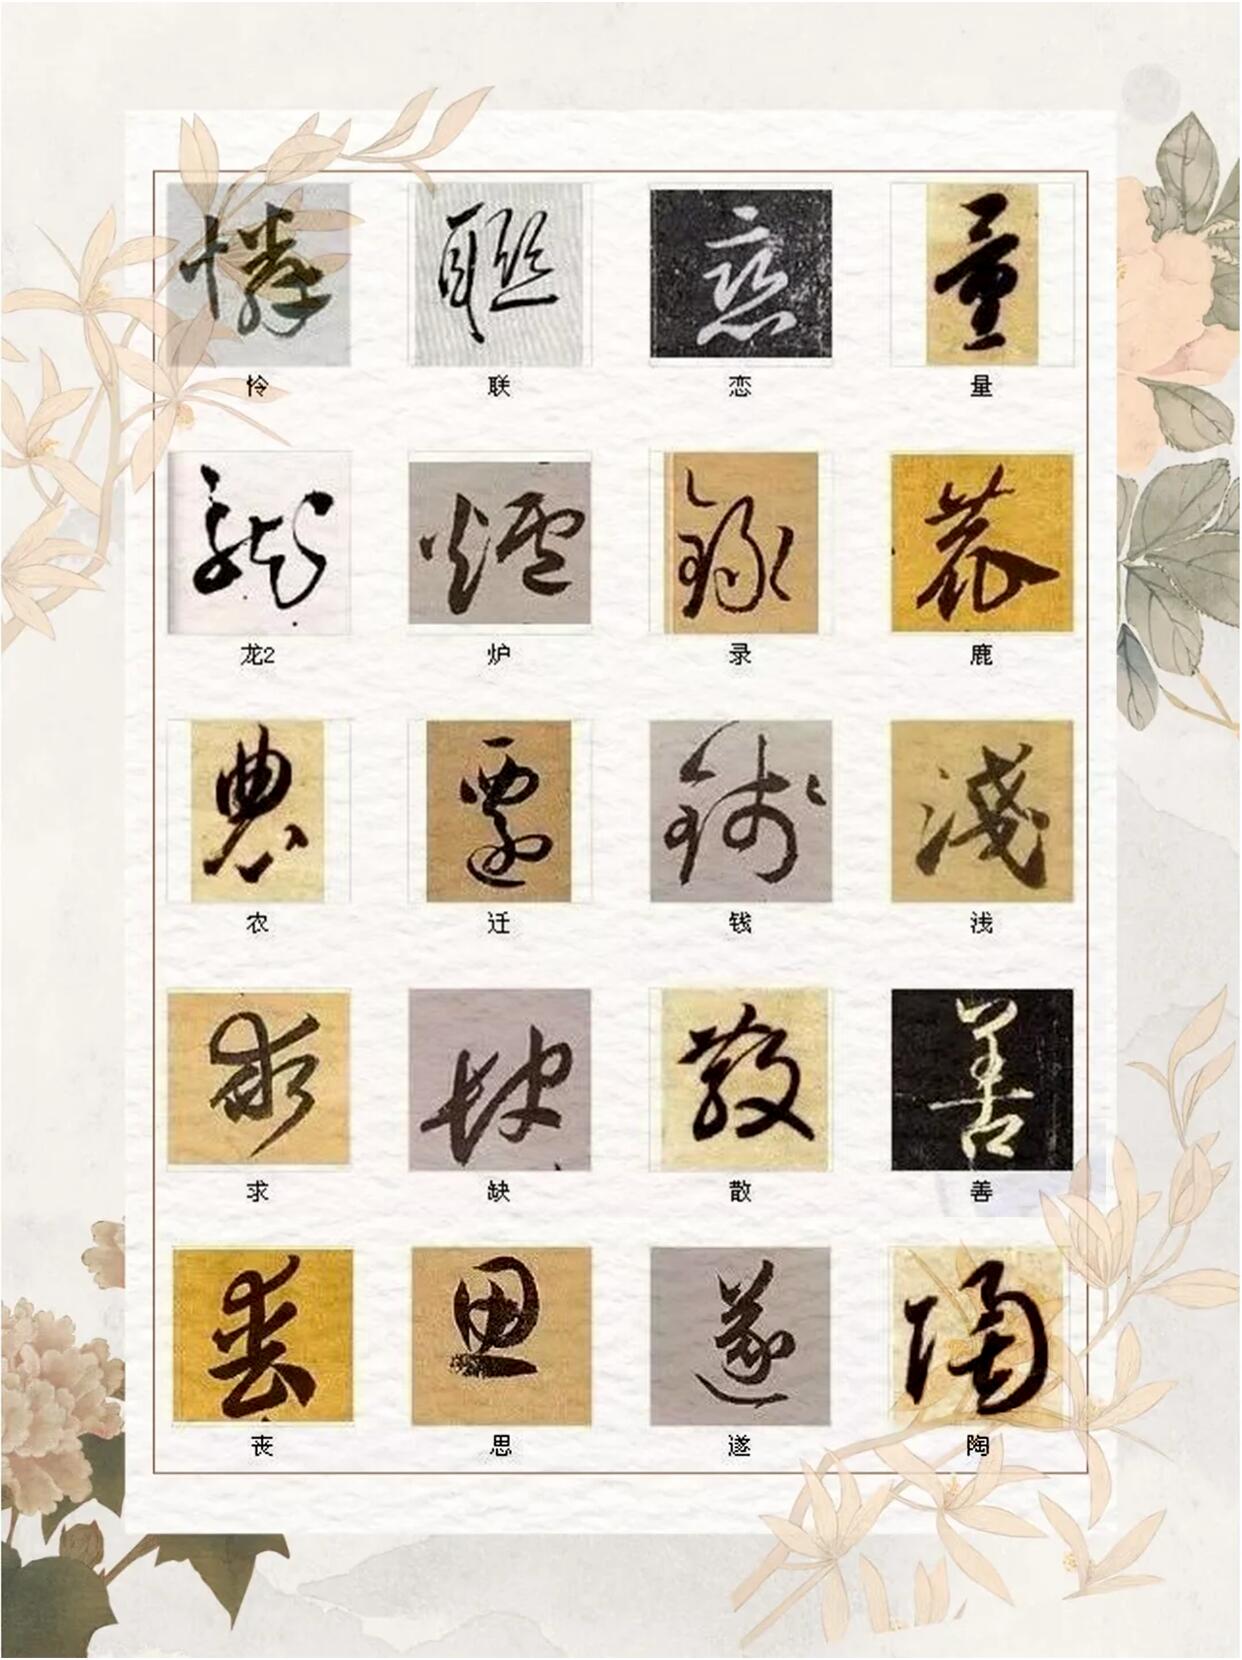 怜 联 恋 量
龙2 炉 录 鹿
农 迁 钱 浅
求 缺 散 善
丧 思 遂 陶